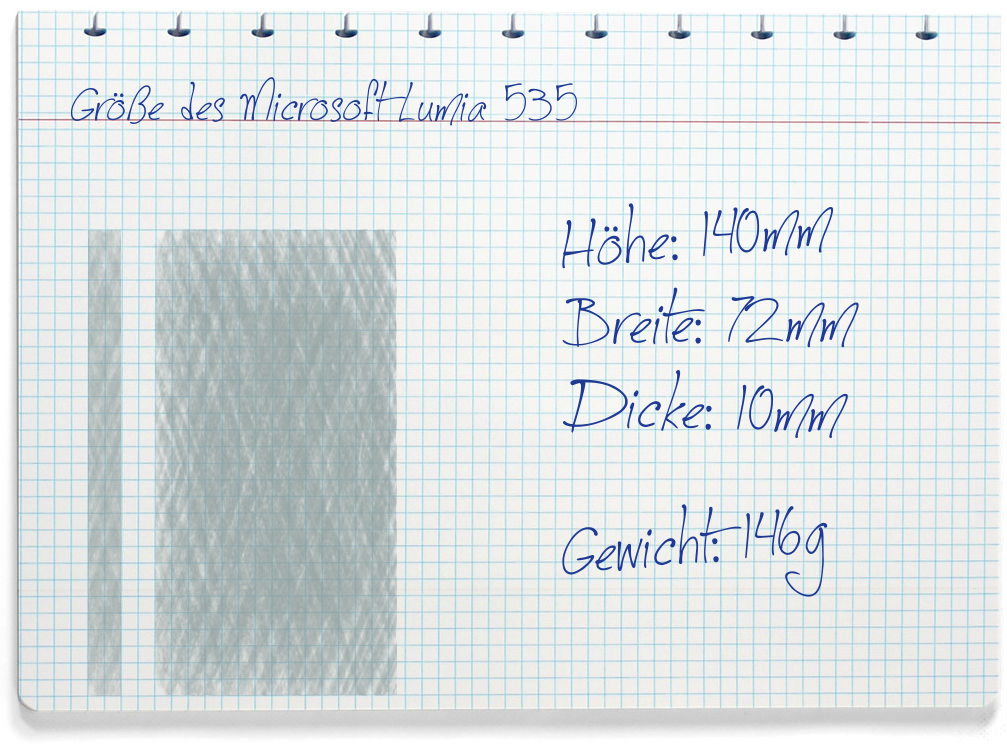 Größe des Microsoft Lumia 535
Höhe: 140mm
Breite: 72mm
Dicke: 10mm
Gewicht: 146g